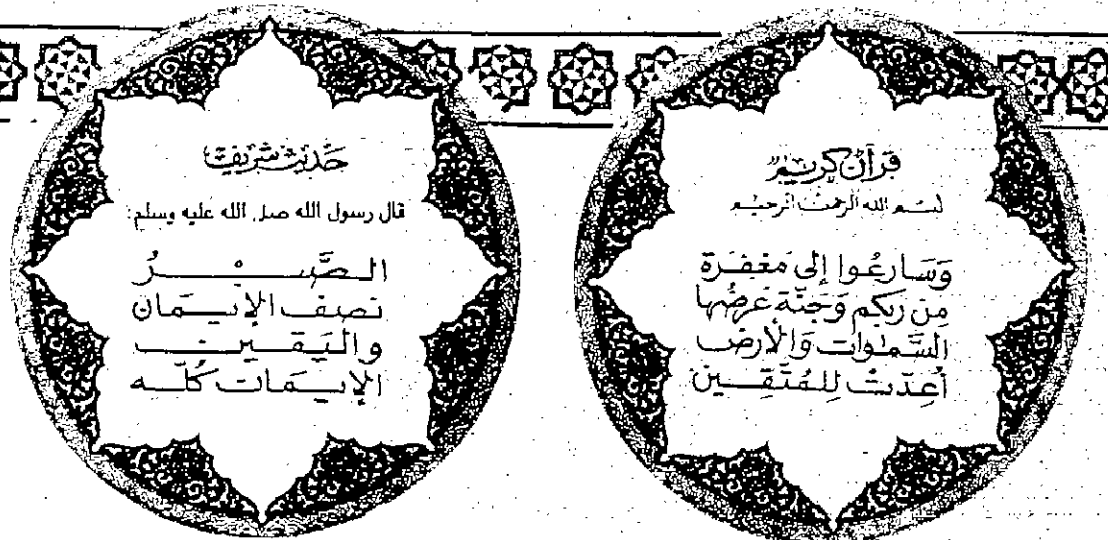 قرآن كريم
بسم الله الرحمن الرحيم
وَسَارعُوا إلى مَغفِرَة
مِن ربكم وَجَنّة عَرضُها
السَّمٰوات وَالأرض
أعِدّتْ لِلمُتّقِـــين
حَديث شَريف
قال رسول الله صلى الله عليه وسلم:
الـصَّـبْـرُ
نصف الإيــمان
واليَـقــين
الإيــمَان كُلّــه